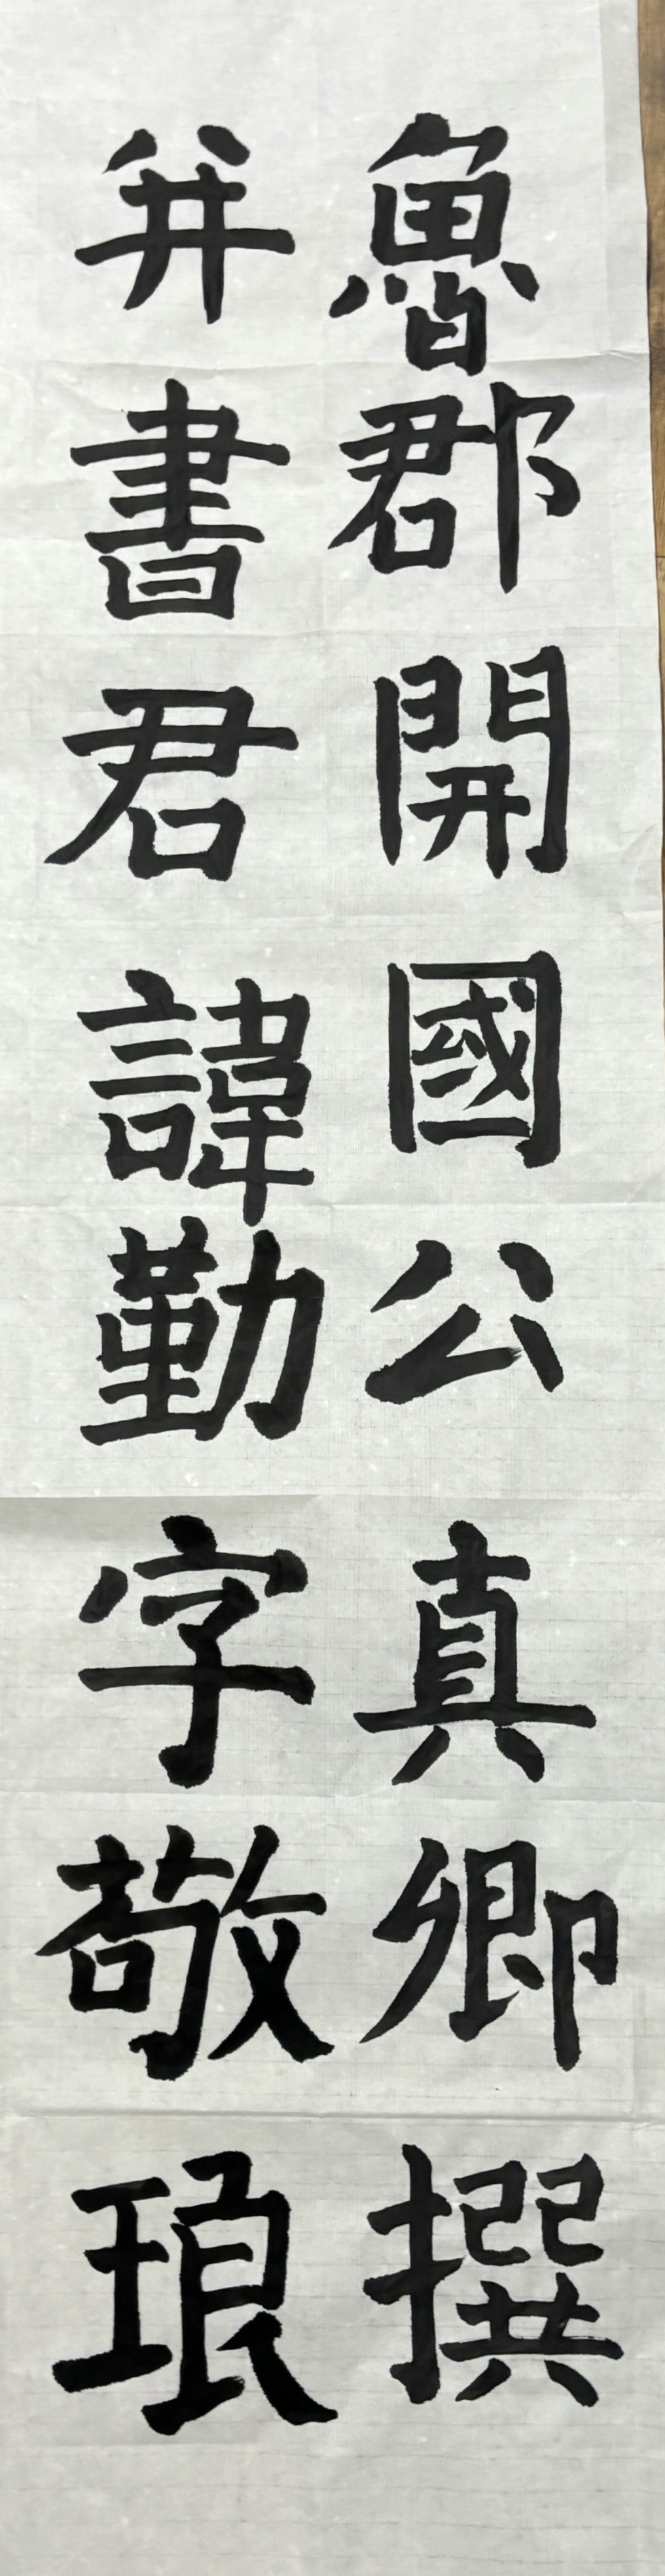 魯郡開國公真卿撰
并書君諱勤字敬琅